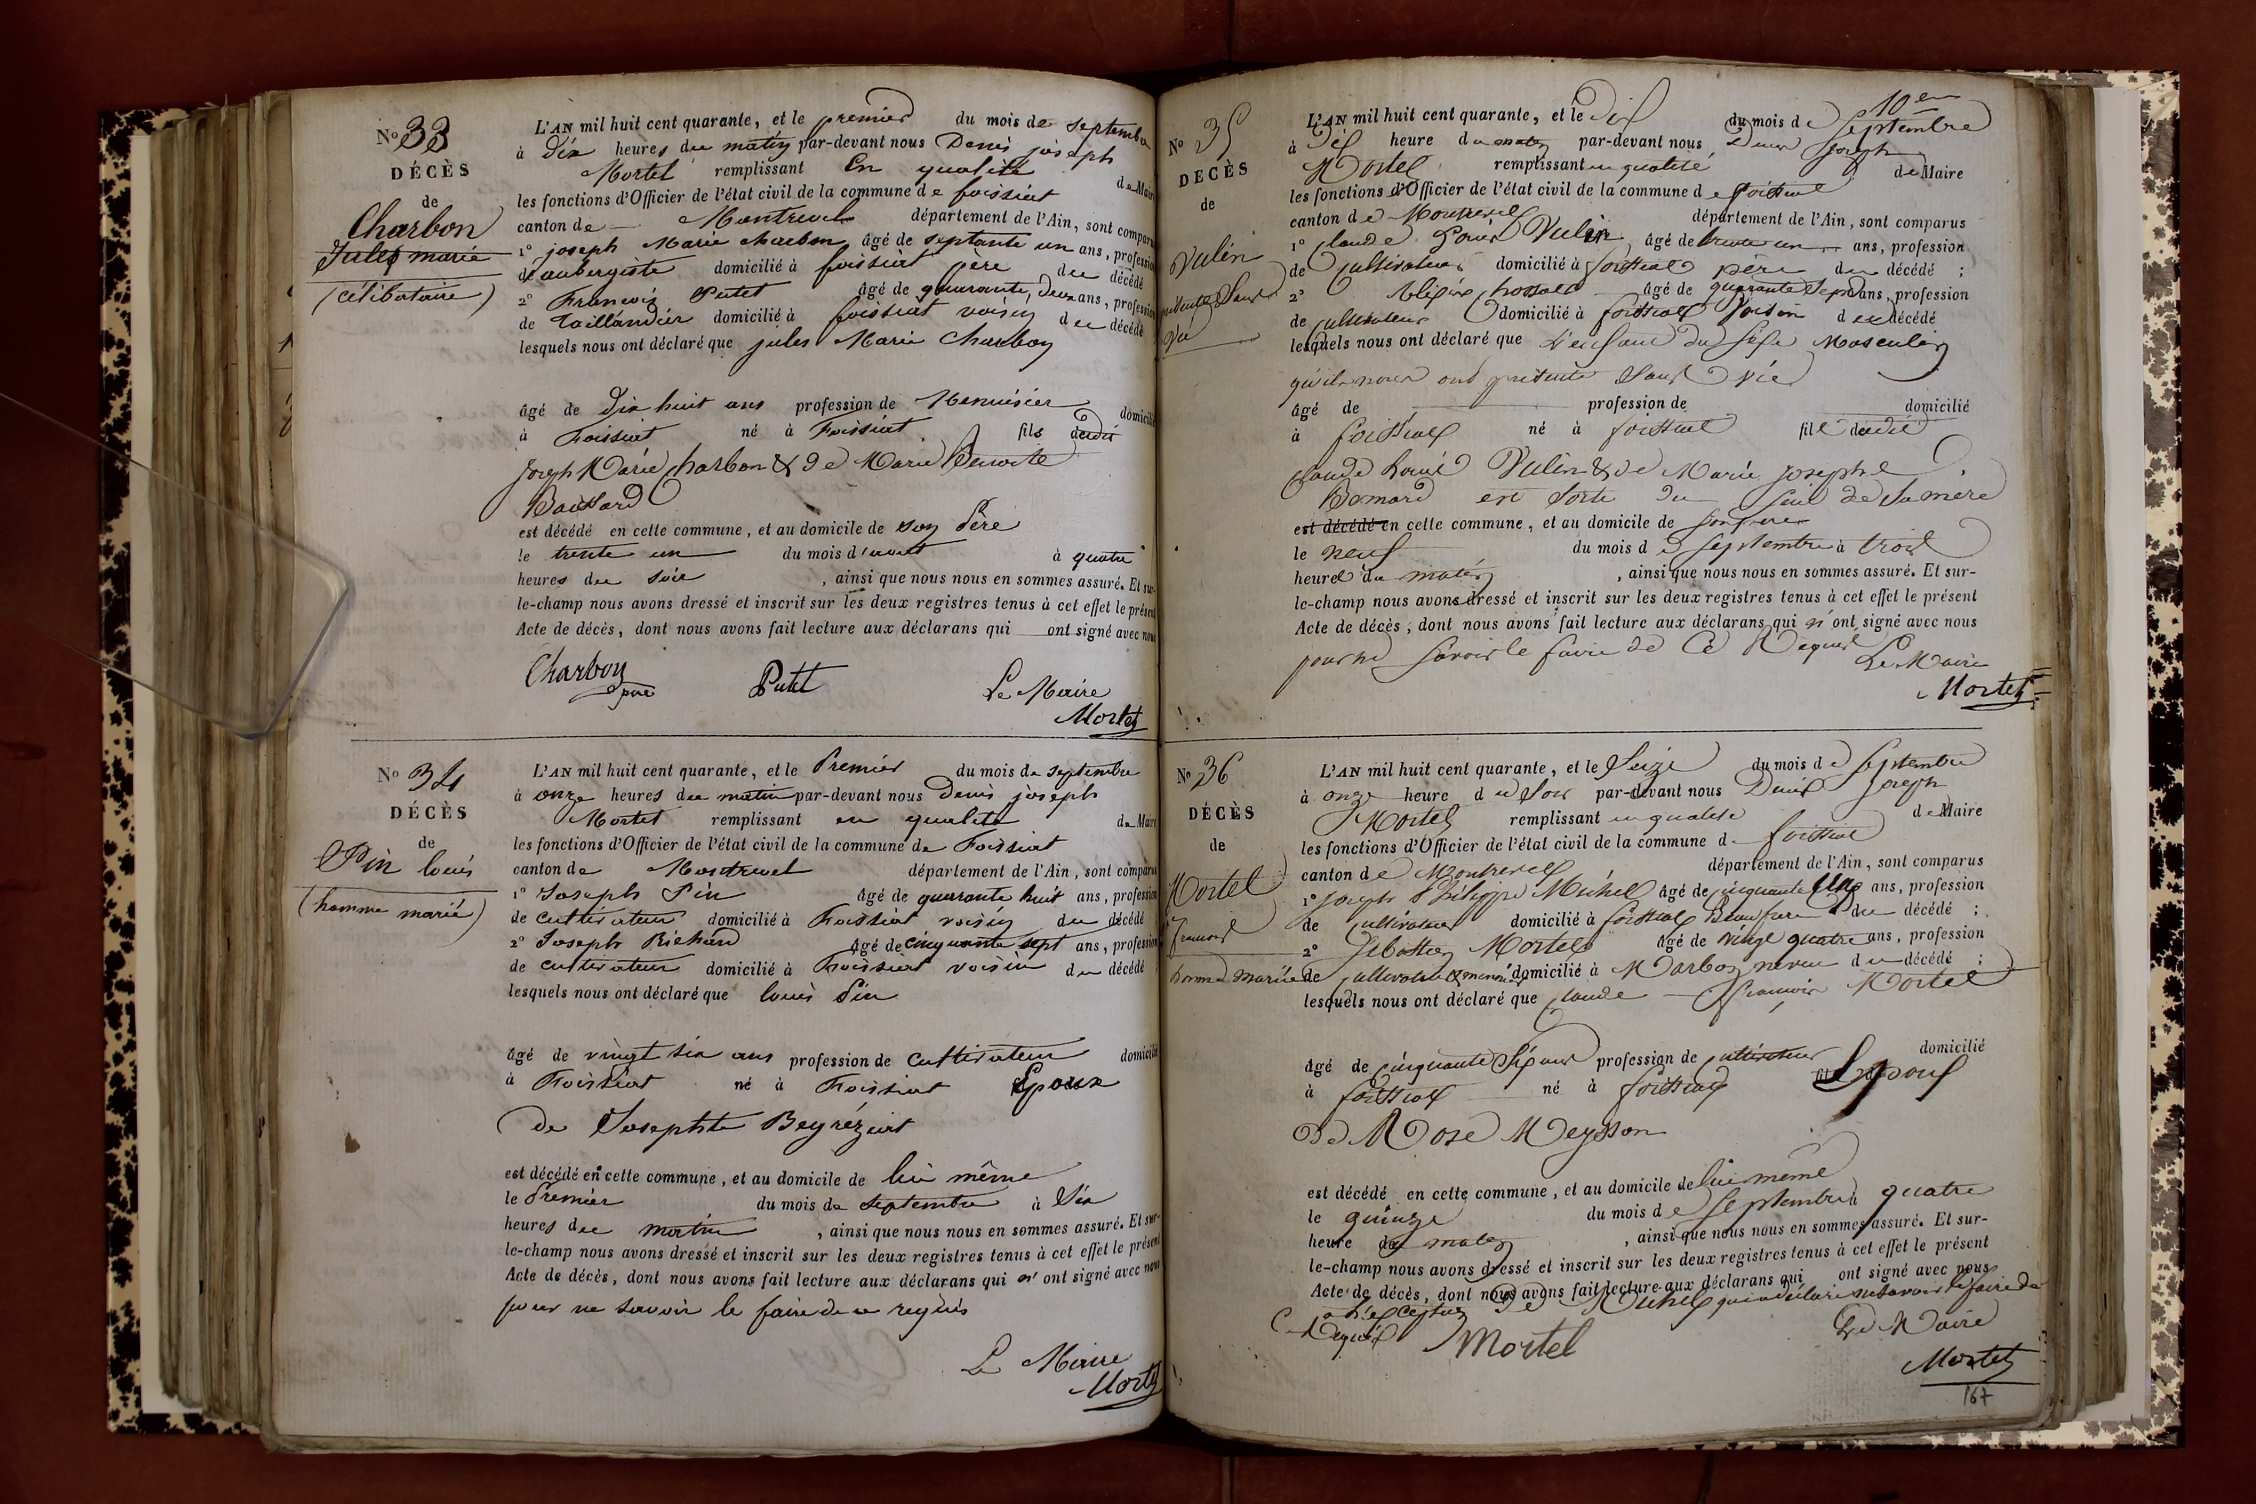 No 33
DÉCÈS
de
Charbon
Jules marie
(célibataire)
L'AN mil huit cent quarante, et le premier du mois de septembre
à dix heures du matin par-devant nous Denis joseph
Mortel remplissant en qualité de Maire
les fonctions d'Officier de l'état civil de la commune de foissiat
canton de Montrevel département de l'Ain, sont comparus
1° joseph Marie charbon âgé de septante un ans, profession
d'aubergiste domicilié à foissiat père du décédé
2° François Putet âgé de quarante deux ans, profession
de taillandier domicilié à foissiat voisin du décédé
lesquels nous ont déclaré que jules Marie Charbon
âgé de dix huit ans profession de Menuisier domicilié
à Foissiat né à Foissiat fils dudit
Joseph Marie charbon & de Marie Benoite
est décédé en cette commune, et au domicile de son Père
le trente un du mois d'aout à quatre
heures du soir, ainsi que nous nous en sommes assuré. Et sur-
le-champ nous avons dressé et inscrit sur les deux registres tenus à cet effet le présent
Acte de décès, dont nous avons fait lecture aux déclarans qui ont signé avec nous
Charbon père Putet Le Maire
Mortel
No 34
DÉCÈS
de
Pin louis
(homme marié)
L'AN mil huit cent quarante, et le Premier du mois de septembre
à onze heures du matin par-devant nous Denis joseph
Mortel remplissant en qualité de Maire
les fonctions d'Officier de l'état civil de la commune de Foissiat
canton de Montrevel département de l'Ain, sont comparus
1° Joseph Pin âgé de quarante huit ans, profession
de cultivateur domicilié à Foissiat voisin du décédé
2° Joseph Richard âgé de cinquante sept ans, profession
de cultivateur domicilié à Foissiat voisin du décédé
lesquels nous ont déclaré que louis Pin
âgé de vingt six ans profession de cultivateur domicilié
à Foissiat né à Foissiat Epoux
de Josephte
est décédé en cette commune, et au domicile de lui même
le Premier du mois de septembre à six
heures du matin, ainsi que nous nous en sommes assuré. Et sur-
le-champ nous avons dressé et inscrit sur les deux registres tenus à cet effet le présent
Acte de décès, dont nous avons fait lecture aux déclarans qui n'ont signé avec nous
pour ne savoir le faire de ce requis
Le Maire
Mortel
No 35
DÉCÈS
de
Vulin
Sans
Vie
L'AN mil huit cent quarante, et le dix du mois de Septembre
à dix heure du matin par-devant nous Denis Joseph
Mortel remplissant en qualité de Maire
les fonctions d'Officier de l'état civil de la commune de foissiat
canton de Montrevel département de l'Ain, sont comparus
1° Claude Louis Vulin âgé de trente un ans, profession
de cultivateur domicilié à foissiat père du décédé ;
2° âgé de quarante sept ans, profession
de cultivateur domicilié à foissiat voisin du décédé
lesquels nous ont déclaré que L'enfant du sexe Masculin
qu'ils nous ont présenté Sans vie
âgé de profession de domicilié
à foissiat né à foissiat fils dudit
Claude Louis Vulin & de Marie Josephte
est sorti du sein de sa mère
est décédé en cette commune, et au domicile de son père
le neuf du mois de septembre à trois
heures du matin, ainsi que nous nous en sommes assuré. Et sur-
le-champ nous avons dressé et inscrit sur les deux registres tenus à cet effet le présent
Acte de décès, dont nous avons fait lecture aux déclarans qui n'ont signé avec nous
pour ne savoir le faire de ce Requis
Le Maire
Mortel
No 36
DÉCÈS
de
Mortel
françois
homme marié
L'AN mil huit cent quarante, et le Seize du mois de Septembre
à onze heure du soir par-devant nous Denis Joseph
Mortel remplissant en qualité de Maire
les fonctions d'Officier de l'état civil de la commune de foissiat
canton de Montrevel département de l'Ain, sont comparus
1° Joseph Philippe Michel âgé de cinquante un ans, profession
de cultivateur domicilié à foissiat Beaufrère du décédé ;
2° Sebastien Mortel âgé de vingt quatre ans, profession
de cultivateur domicilié à Marboz neveu du décédé ;
lesquels nous ont déclaré que Claude françois Mortel
âgé de cinquante six ans profession de cultivateur domicilié
à foissiat né à foissiat Epoux
De Rose Meysson
est décédé en cette commune, et au domicile de lui même
le quinze du mois de Septembre à quatre
heure du matin, ainsi que nous nous en sommes assuré. Et sur-
le-champ nous avons dressé et inscrit sur les deux registres tenus à cet effet le présent
Acte de décès, dont nous avons fait lecture aux déclarans qui ont signé avec nous
à l'exception de Michel qui a déclaré ne savoir le faire de
Ce Requis Mortel Le Maire
Mortel
167